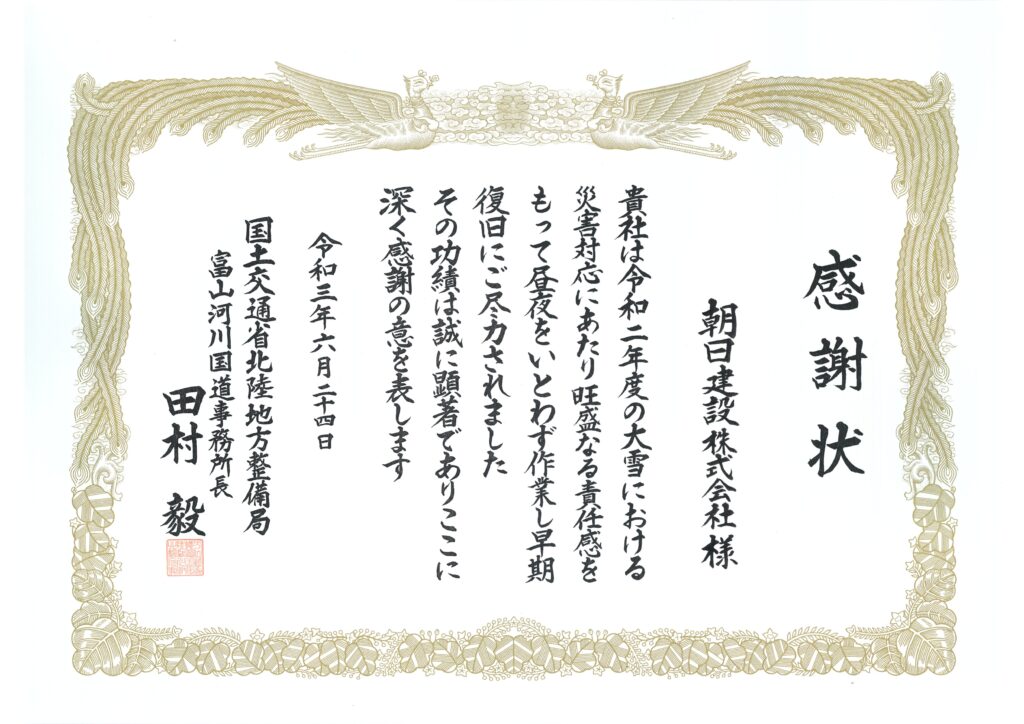 感謝状
朝日建設株式会社 様
貴社は令和二年度の大雪における
災害対応にあたり旺盛なる責任感を
もって昼夜をいとわず作業し早期
復旧にご尽力されました
その功績は誠に顕著でありここに
深く感謝の意を表します
令和三年六月二十四日
国土交通省北陸地方整備局
富山河川国道事務所長
田村 毅